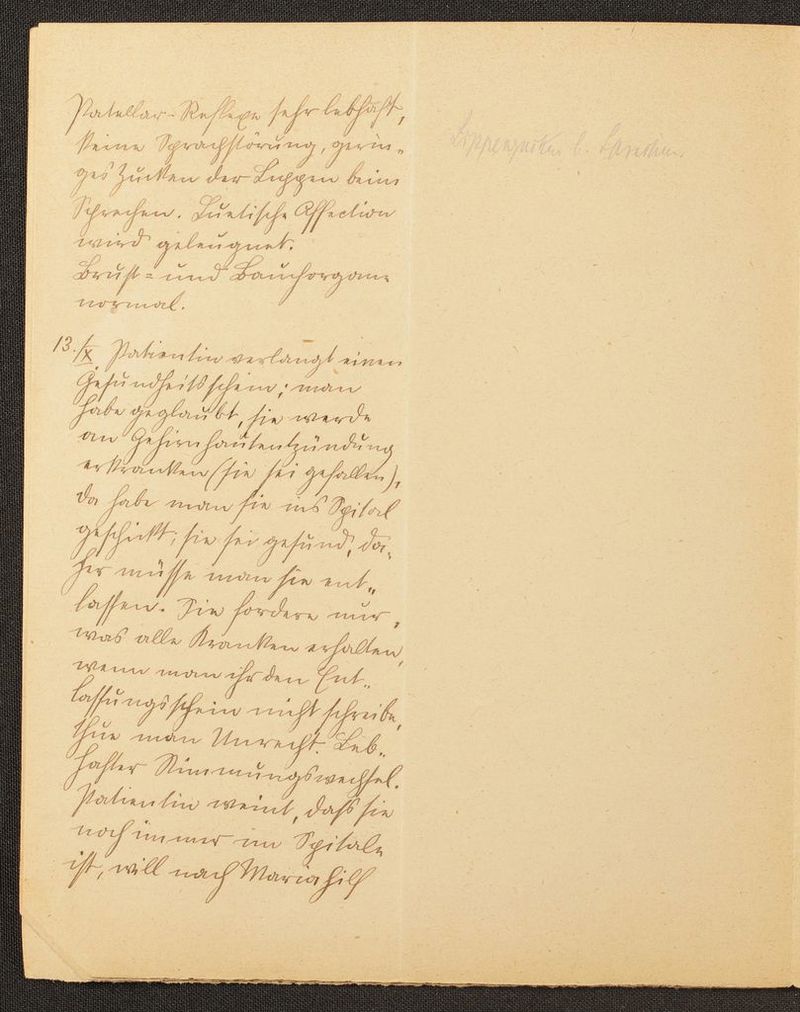 Patellar-Reflexe sehr lebhaft,
keine Sprachstörung, gerin-
ges Zucken der Lippen beim
Sprechen. Luetische Affection
wird geleugnet.
Brust- und Bauchorgane
normal.
13./X Patientin verlangt einen
Gesundheitsschein; man
habe geglaubt, sie werde
an Gehirnhautentzündung
erkranken (sie sei gefallen),
da habe man sie ins Spital
geschickt; sie sei gesund, da-
her müsse man sie ent-
lassen. Sie fordere nur,
was alle Kranken erhalten,
wenn man ihr den Ent-
lassungsschein nicht schreibe,
thue man Unrecht. Leb-
hafter Stimmungswechsel.
Patientin weint, dass sie
noch immer im Spitale
ist, will nach Mariahilf
Lippenzucken b. Sprechen.